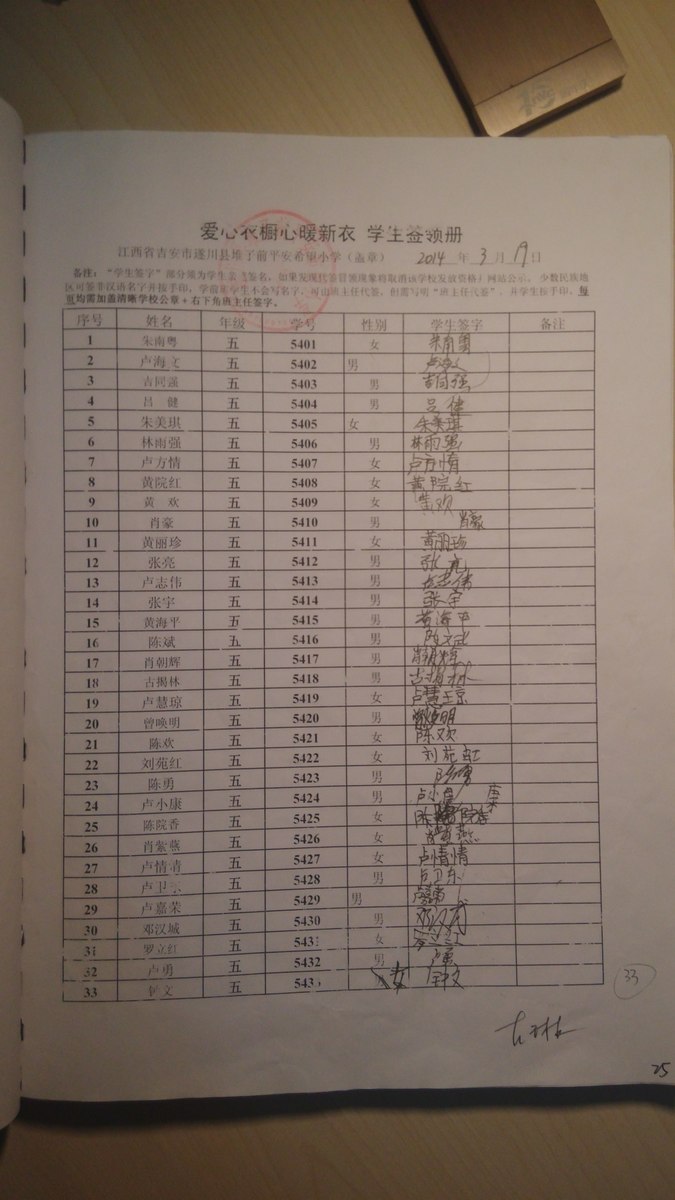 爱心衣橱心暖新衣 学生签领册
江西省吉安市遂川县堆子前平安希望小学（盖章） 2014 年 3 月 19 日
备注：“学生签字”部分须为学生亲笔签名，如果发现代签冒领现象将取消该学校发放资格并网站公示，少数民族地
区可签非汉语名字并按手印，学前班学生不会写名字，可由班主任代签，但需写明“班主任代签”，并学生按手印，每
页均需加盖清晰学校公章+右下角班主任签字。
序号 姓名 年级 学号 性别 学生签字 备注
1 朱南粤 五 5401 女 朱南粤
2 卢海文 五 5402 男 卢海文
3 吉同强 五 5403 男 吉同强
4 吕健 五 5404 男 吕健
5 朱美琪 五 5405 女 朱美琪
6 林雨强 五 5406 男 林雨强
7 卢方情 五 5407 女 卢方情
8 黄院红 五 5408 女 黄院红
9 黄欢 五 5409 女 黄欢
10 肖豪 五 5410 男 肖豪
11 黄丽珍 五 5411 女 黄丽珍
12 张亮 五 5412 男 张亮
13 卢志伟 五 5413 男 卢志伟
14 张宇 五 5414 男 张宇
15 黄海平 五 5415 男 黄海平
16 陈斌 五 5416 男 陈斌
17 肖朝辉 五 5417 男 肖朝辉
18 古揚林 五 5418 男 古揚林
19 卢慧琼 五 5419 女 卢慧琼
20 曾唤明 五 5420 男 明
21 陈欢 五 5421 女 陈欢
22 刘苑红 五 5422 女 刘苑红
23 陈勇 五 5423 男 陈勇
24 卢小康 五 5424 男 卢小 康
25 陈院香 五 5425 女 陈院香
26 肖紫燕 五 5426 女 肖紫燕
27 卢情情 五 5427 女 卢情情
28 卢卫东 五 5428 男 卢卫东
29 卢嘉荣 五 5429 男
30 邓汉城 五 5430 男 邓汉城
31 罗立红 五 5431 女
32 卢勇 五 5432 男 卢勇
33 钟文 五 543 女 钟文
33
25